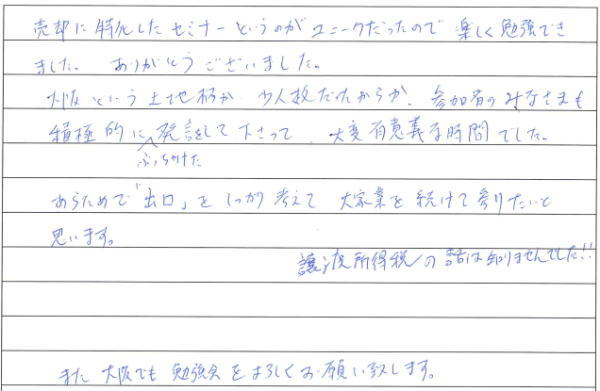 売却に特化したセミナーというのがユニークだったので楽しく勉強でき
ました。ありがとうございました。
大阪という土地柄か、少人数だったからか、参加者のみなさまも
積極的に発言をして下さって、大変有意義な時間でした。
ぶっちゃけた
あらためて「出口」をしっかり考えて大家業を続けて参りたいと
思います。
譲渡所得税の話は知りませんでした!!
また大阪でも勉強会をよろしくお願い致します。